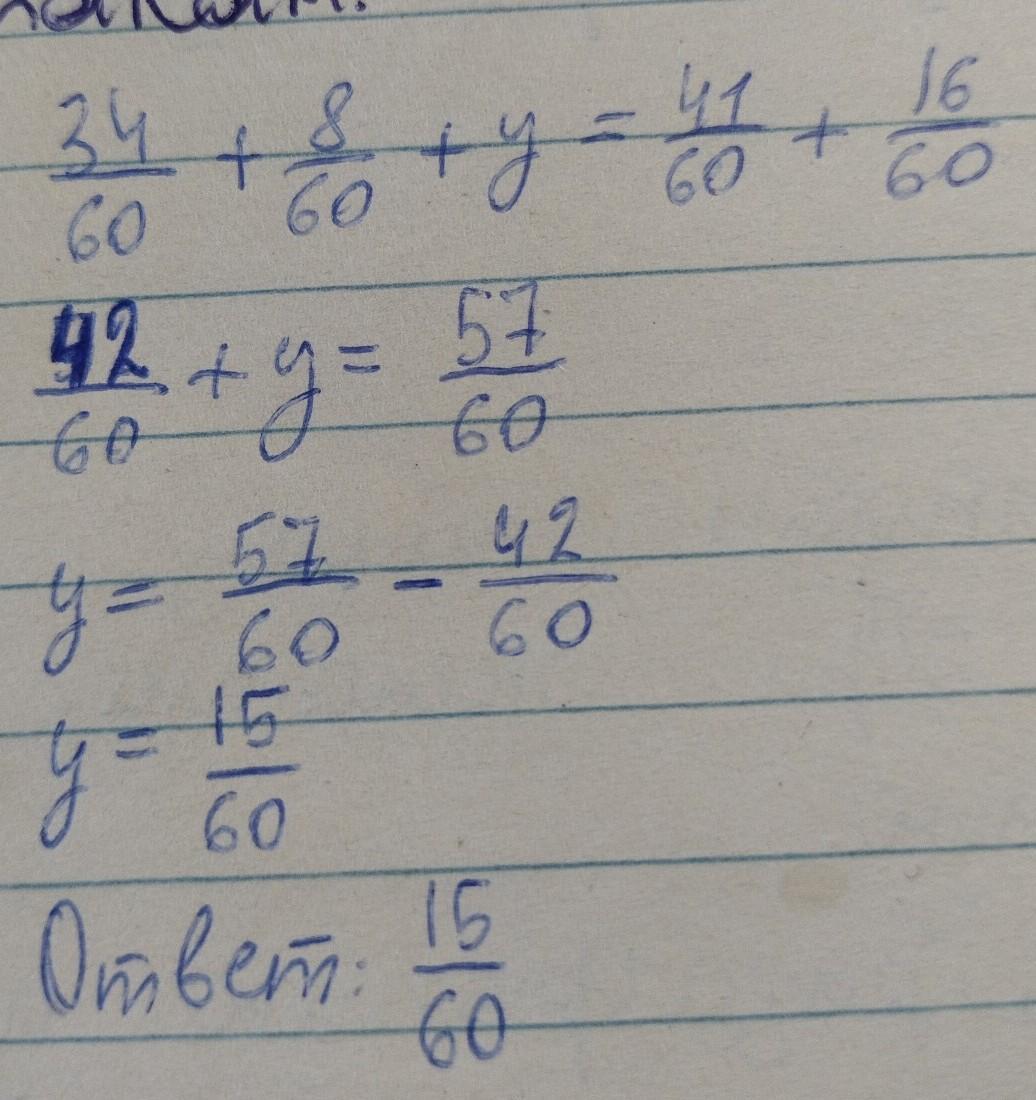 34/60 + 8/60 + y = 41/60 + 16/60
42/60 + y = 57/60
y = 57/60 - 42/60
y = 15/60
Ответ: 15/60